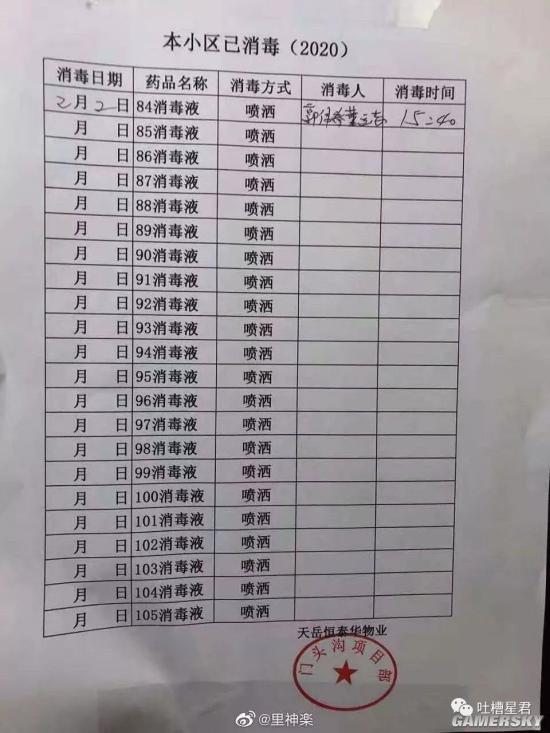 本小区已消毒（2020）
消毒日期 药品名称 消毒方式 消毒人 消毒时间
2月2日 84消毒液 喷洒 15:40
月 日 85消毒液 喷洒
月 日 86消毒液 喷洒
月 日 87消毒液 喷洒
月 日 88消毒液 喷洒
月 日 89消毒液 喷洒
月 日 90消毒液 喷洒
月 日 91消毒液 喷洒
月 日 92消毒液 喷洒
月 日 93消毒液 喷洒
月 日 94消毒液 喷洒
月 日 95消毒液 喷洒
月 日 96消毒液 喷洒
月 日 97消毒液 喷洒
月 日 98消毒液 喷洒
月 日 99消毒液 喷洒
月 日 100消毒液 喷洒
月 日 101消毒液 喷洒
月 日 102消毒液 喷洒
月 日 103消毒液 喷洒
月 日 104消毒液 喷洒
月 日 105消毒液 喷洒
天岳恒泰华物业
门头沟项目部
@里神楽
吐槽星君
GAMERSKY